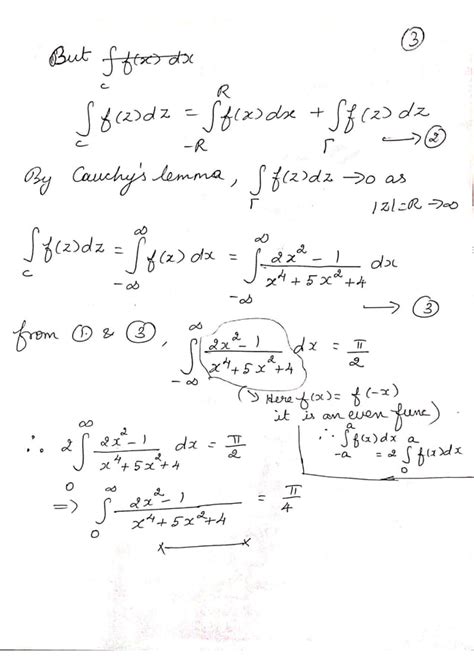 ③
But ∫_c f(x) dx
∫_c f(z)dz = ∫_{-R}^{R} f(x)dx + ∫_Γ f(z)dz
→ ②
By Cauchy's lemma, ∫_Γ f(z)dz → 0 as
|z|=R → ∞
∫_c f(z)dz = ∫_{-∞}^{∞} f(x)dx = ∫_{-∞}^{∞} (2x²-1)/(x⁴+5x²+4) dx
→ ③
from ① & ③, ∫_{-∞}^{∞} (2x²-1)/(x⁴+5x²+4) dx = π/2
(→ Here f(x) = f(-x)
it is an even func)
∴ 2∫_0^∞ (2x²-1)/(x⁴+5x²+4) dx = π/2
∵ ∫_{-a}^{a} f(x)dx = 2∫_0^a f(x)dx
⇒ ∫_0^∞ (2x²-1)/(x⁴+5x²+4) = π/4
×——×